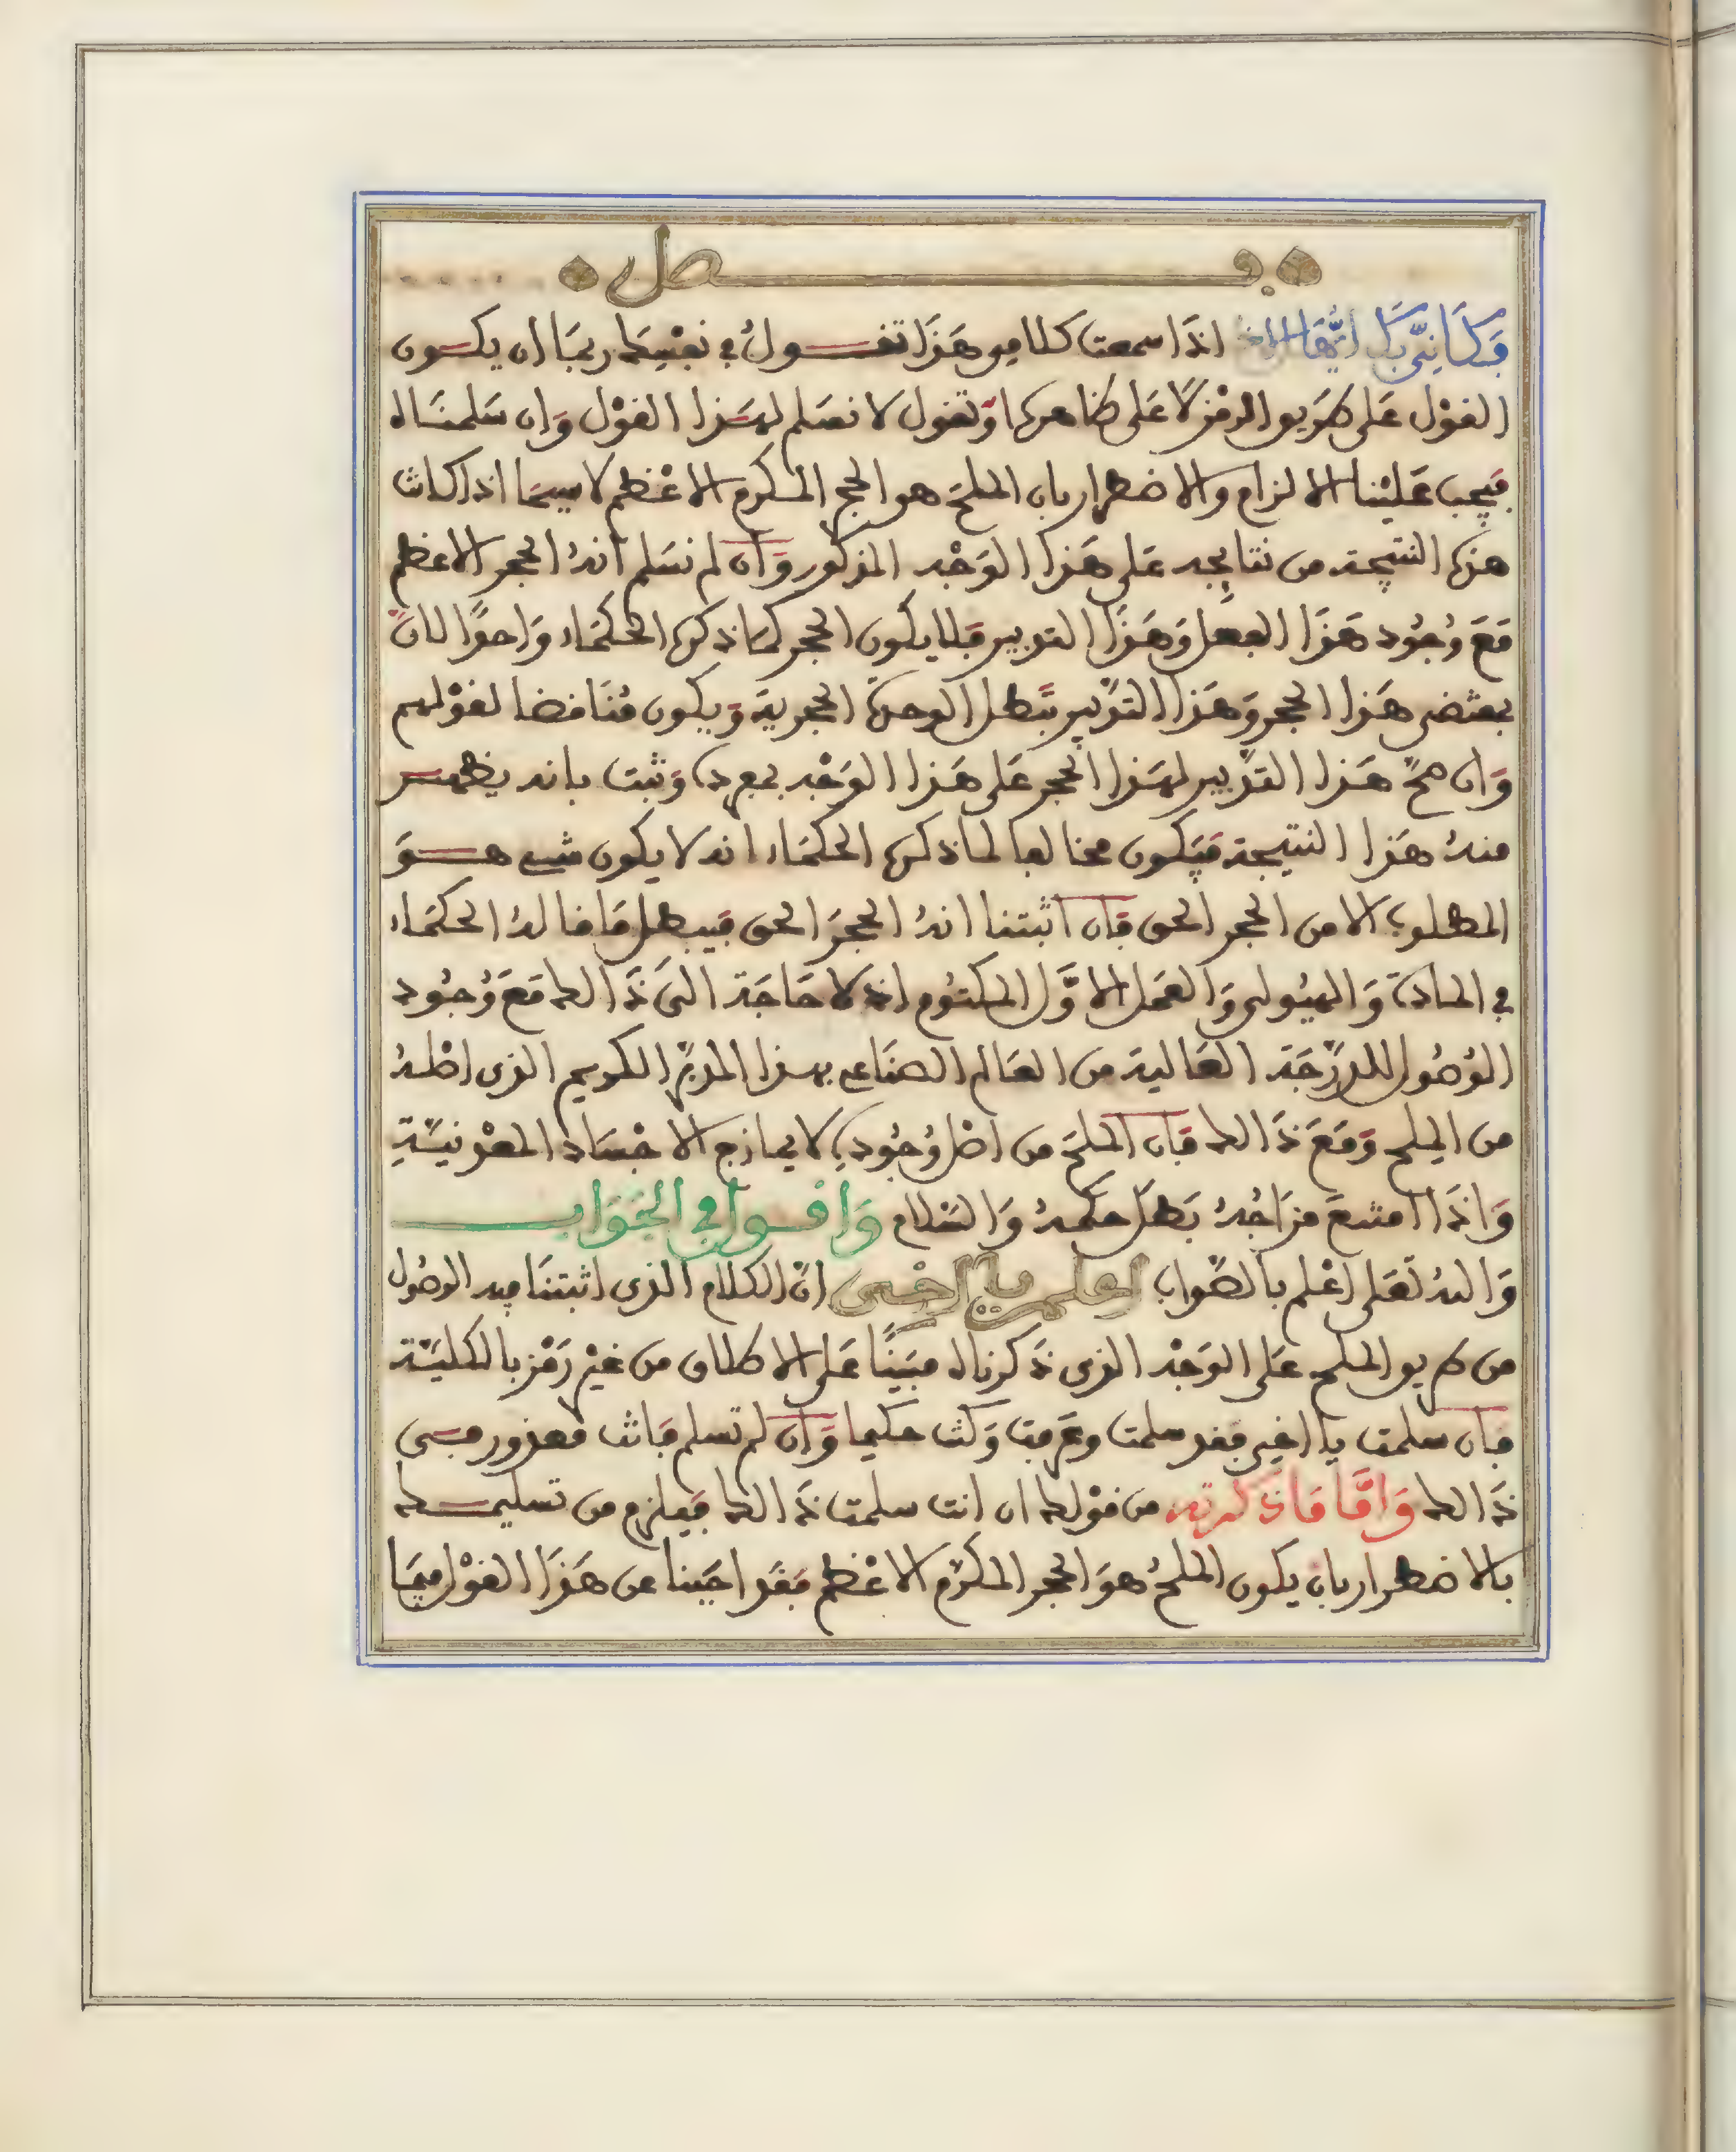 فصل
فكأني بك أيها الاخ اذا سمعت كلامي هذا تقول في نفسك ربما ان يكون
القول على طريق الرمز لا على ظاهره او تقول لا نسلم لهذا القول وان سلمناه
فيجب علينا الالزام والاضطرار بان الملح هو الحجر المكرم الاعظم لا سيما اذا كانت
هذه النتيجة من نتايجه على هذا الوجه المذكور وان لم نسلم انه الحجر الاعظم
مع وجود هذا الفعل وهذا التدبير فلا يكون الحجر كما ذكره الحكماء واحدا لان
بمقتضى هذا الحجر وهذا التدبير تبطل الوحدة الحجرية ويكون مناقضا لقولهم
وان صح هذا التدبير لهذا الحجر على هذا الوجه بمفرده وثبت بانه يظهر
منه هذا النتيجة فيكون مخالفا لما ذكره الحكماء انه لا يكون شيء هو
المطلوب الا من الحجر الحق فان اثبتنا انه الحجر الحق فيبطل ما قاله الحكماء
في المادة والهيولى والعمل الاول المكتوم اذ لا حاجة الى ذالك مع وجود
الوصول للدرجة العالية من العالم الصناعي بهذا المدبر الكريم الذي اصله
من الملح ومع ذالك فان الملح من اصل وجوده لا يمازج الاجساد المعدنية
واذا امتنع مزاجه بطل حكمه والسلام واقول في الجواب
والله تعلى اعلم بالصواب اعلم يا اخي ان الكلام الذي اثبتنا فيه الوصول
من طريق الملح على الوجه الذي ذكرناه مبينا على الاطلاق من غير رمز بالكلية
فان سلمت يا اخي فقد سلمت وعرفت وكنت حكيما وان لم تسلم فانت معذور في
ذالك واما ما ذكرته من قولك ان انت سلمت ذالك فيلزم من تسليمك
بالاضطرار بان يكون الملح هو الحجر المكرم الاعظم فقد اجبنا عن هذا القول فيما